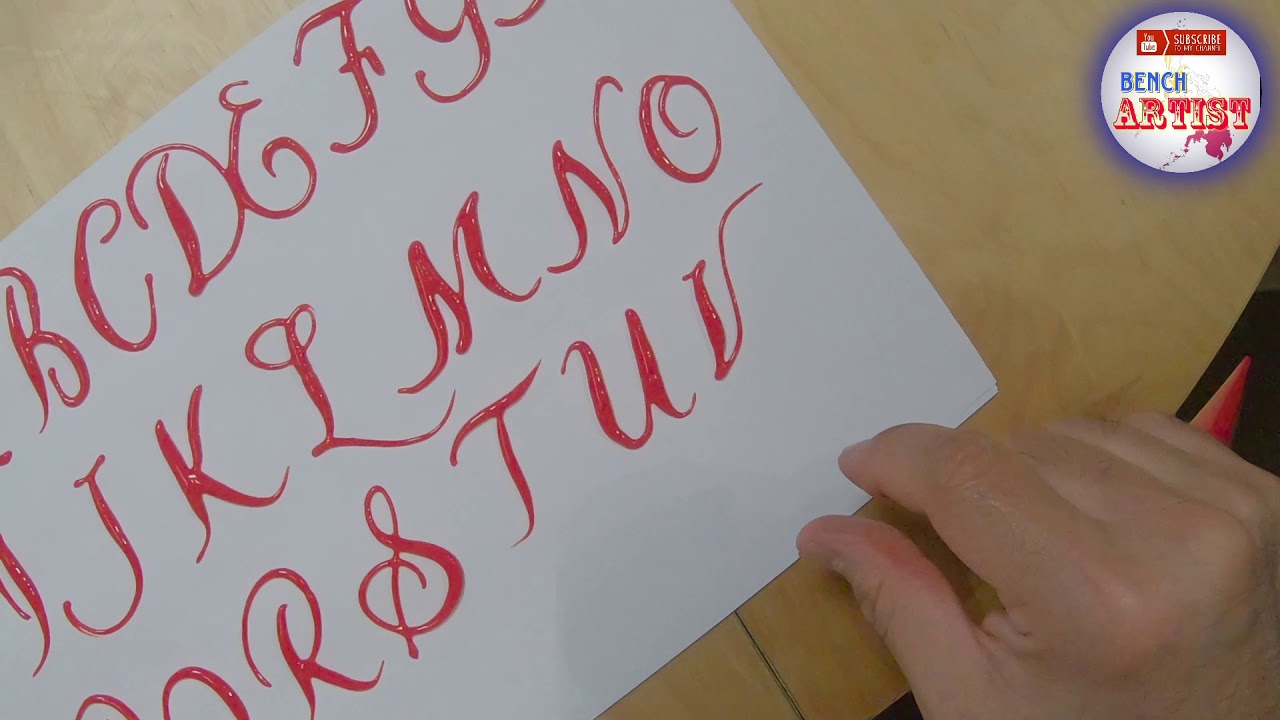 B C D E F G
J K L M N O
R S T U V
You Tube
SUBSCRIBE
TO MY CHANNEL
BENCH
ARTIST